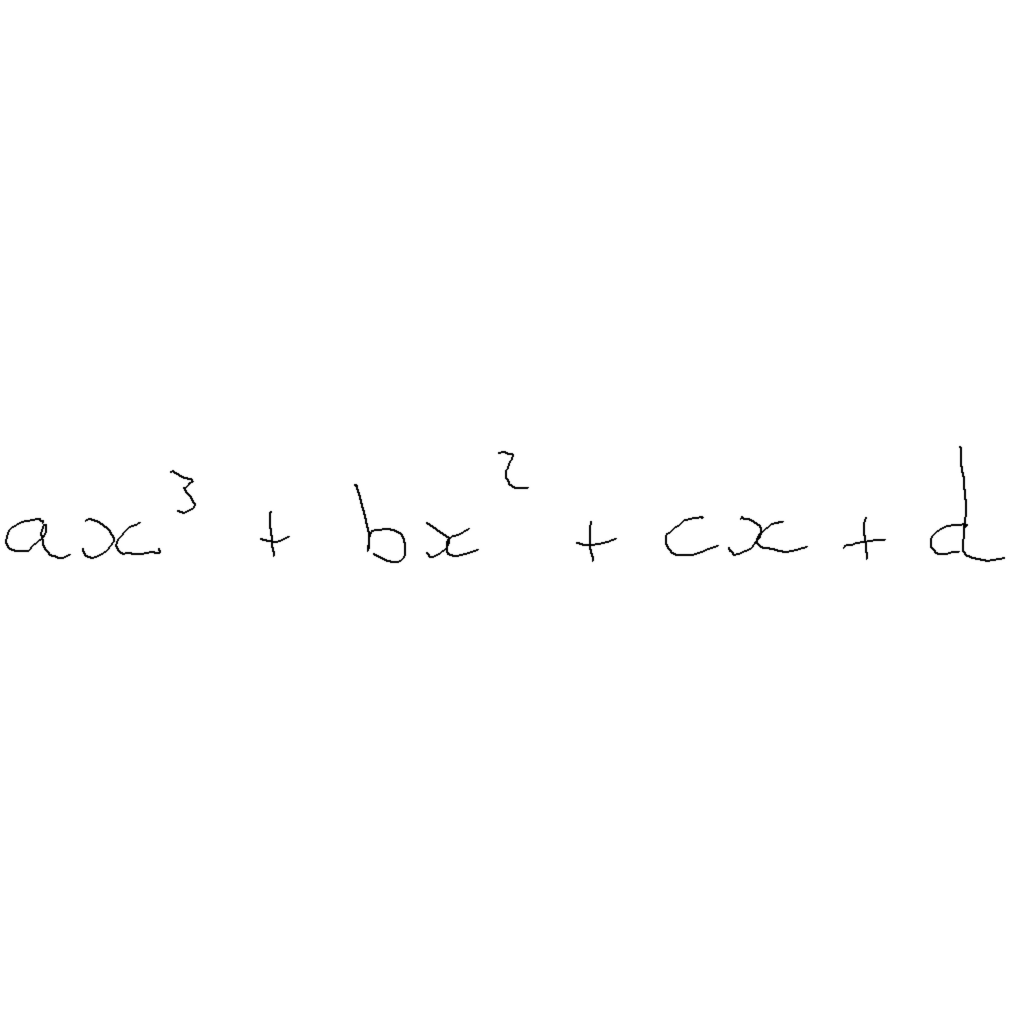 ax³ + bx² + cx + d